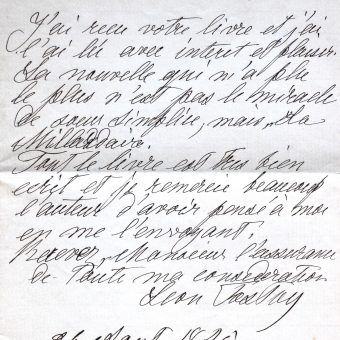 J'ai reçu votre livre et j'ai
l'ai lu avec interet et plaisir.
La nouvelle qui m'a plu
le plus n'est pas le miracle
de sour Simplice, mais „La
Milliardaire.
Tout le livre est très bien
ecrit et je remercie beaucoup
l'auteur d'avoir pensé à moi
en me l'envoyant.
Recevez, Monsieur l'assurance
de toute ma consideration
Léon Tolstoy